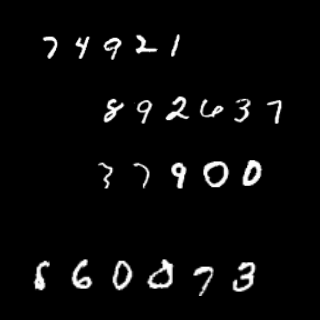 74921
892637
37900
860073